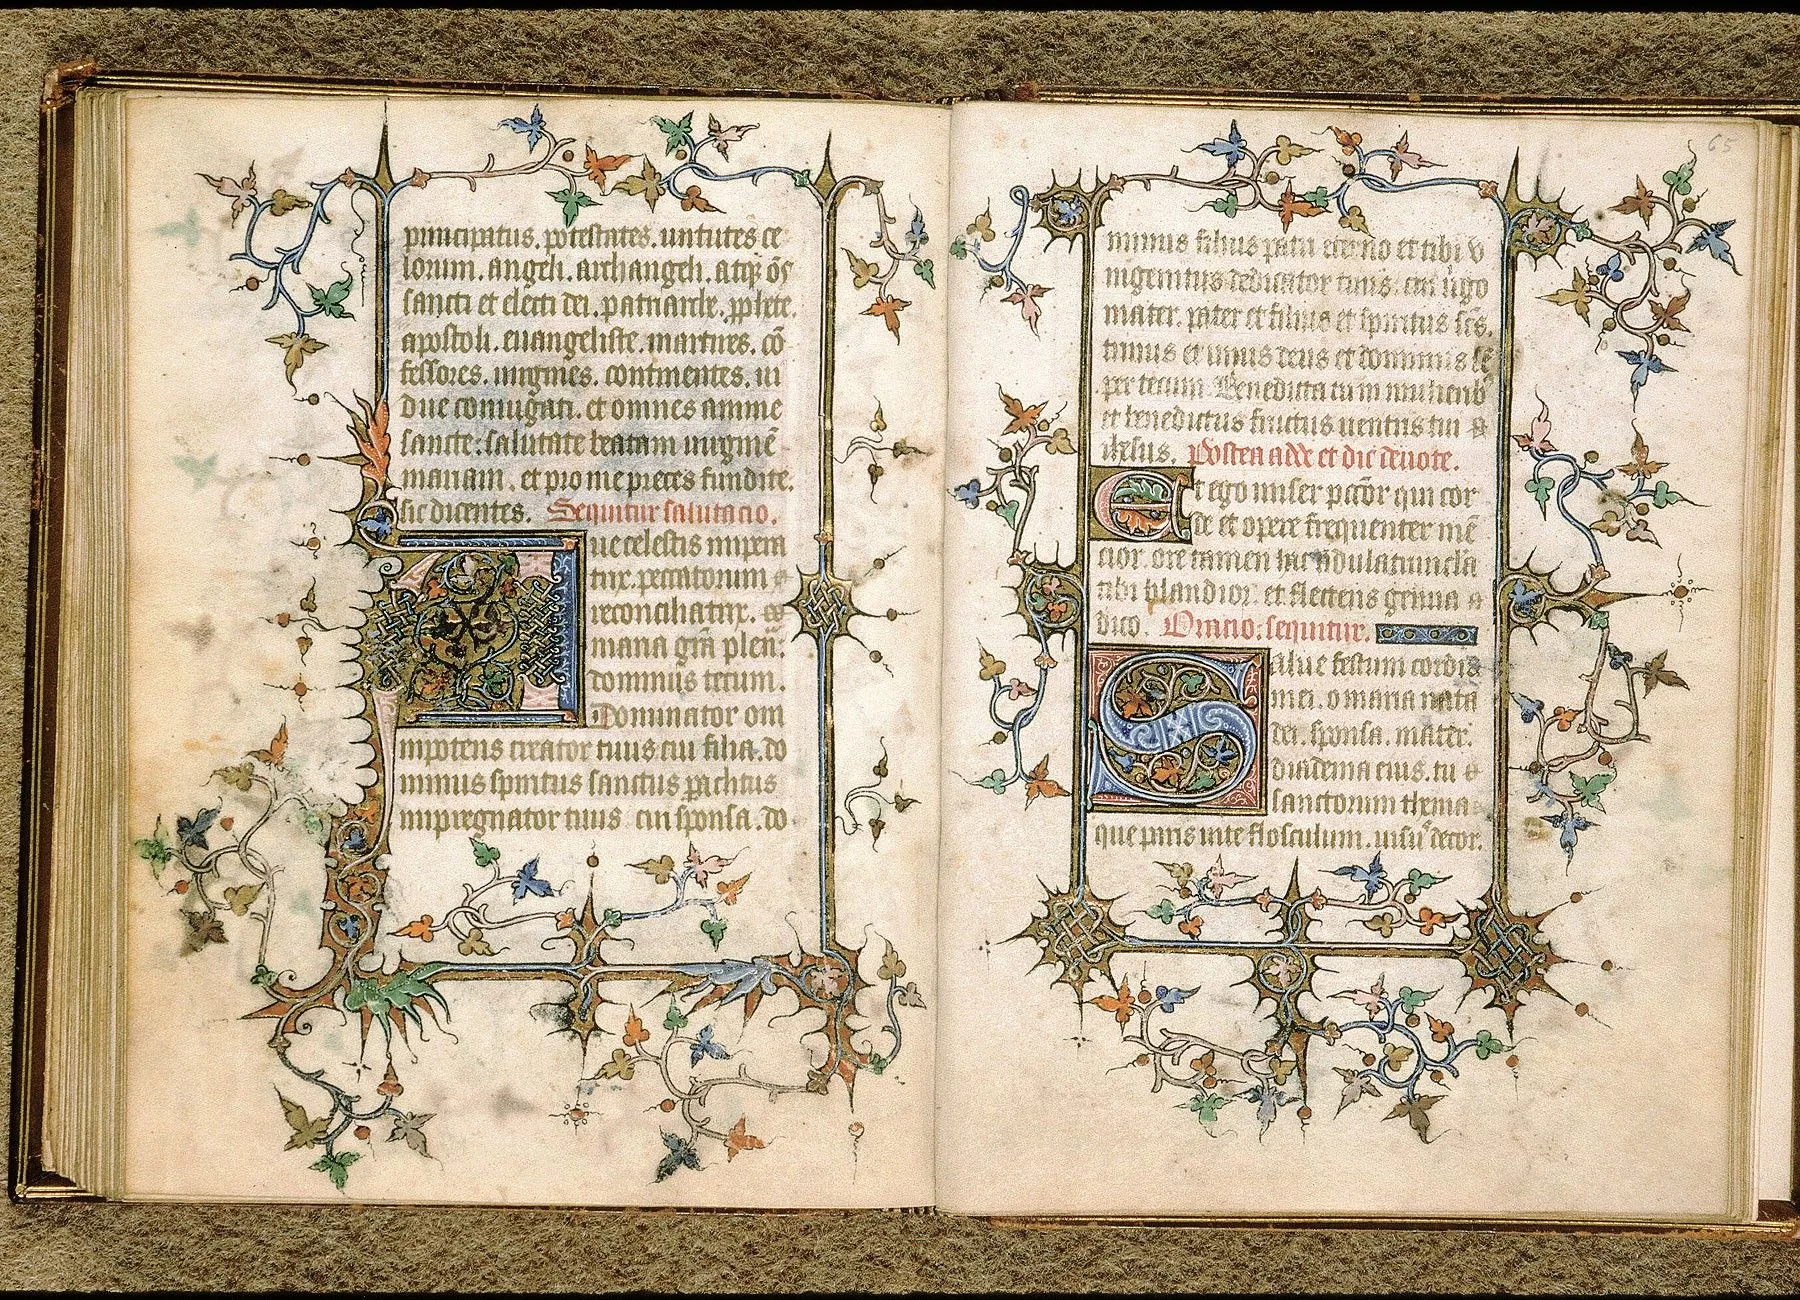 principatus. potestates. uirtutes ce
lorum. angeli. archangeli. atq; oēs
sancti et electi dei. patriarche. pphete.
apostoli. euangeliste. martires. cō
fessores. uirgines. continentes. ui
due coniugati. et omnes anime
sancte: salutate beatam uirginē
mariam. et pro me preces fundite.
sic dicentes. Sequitur salutacio.
Aue celestis impera
trix. peccatorum
reconciliatrix.
maria grā plen.
dominus tecum.
Dominator om
nipotens creator tuus cui filia. do
minus spiritus sanctus paclitus
impregnator tuus cui sponsa. do
65
minus filius patri eterno et tibi v
nigenitus dedicator tuus. cui ūgo
mater. pater et filius et spiritus scs.
trinus et unus deus et dominus sē
per tecum. Benedicta tu in mulierib
et benedictus fructus uentris tui
ihesus. Postea adde et dic deuote.
Et ego miser pctōr qui cor
de et opere frequenter mē
cior. ore tamen hac adulatiuncula
tibi blandior. et flectens genua
dico. Oratio. sequitur.
Salue festum cordis
mei. o maria nata
dei. sponsa. mater.
diadema eius. tu
sanctorum thema
que paris uite flosculum. uisu decor.